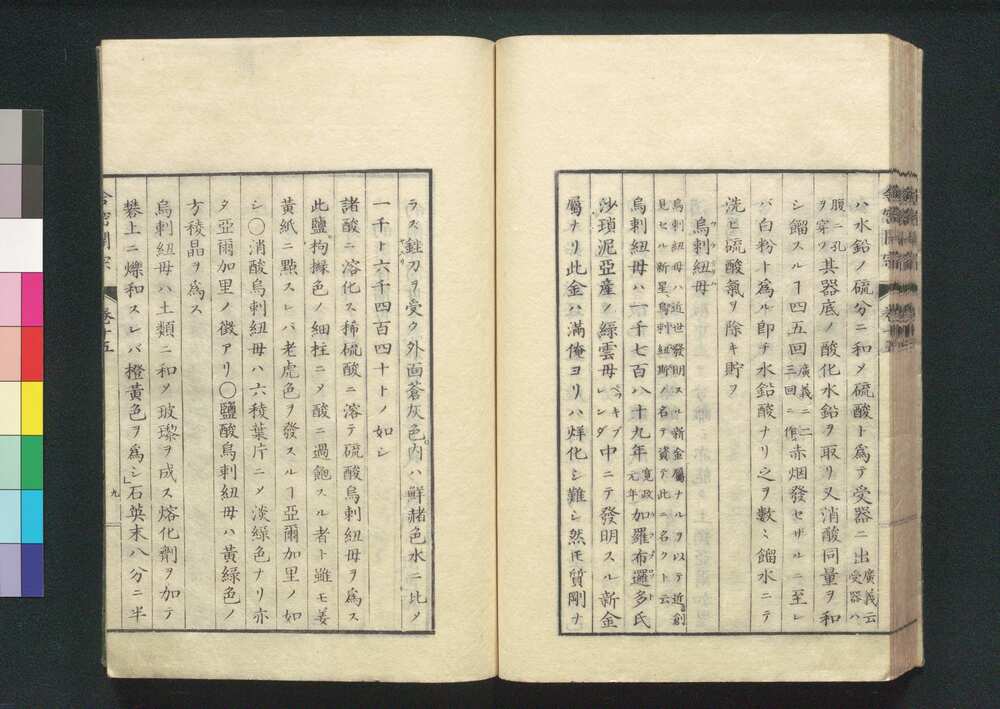 ハ水鉛ノ硫分ニ和メ硫酸ト爲テ受器ニ出廣義云受器ハ
腹ニ孔ヲ穿ツ其器底ノ酸化水鉛ヲ取リ又消酸同量ヲ和
シ餾スルヿ四五回廣義ニ二三回ニ作赤烟發セザルニ至レ
バ白粉ト爲ル即チ水鉛酸ナリ之ヲ數〻餾水ニテ
洗ヒ硫酸氣ヲ除キ貯フ
烏剌紐母
烏剌紐母ハ近世發明スル新金屬ナルヲ以テ近創
見セル新星烏剌紐斯ノ名ヲ資テ此ニ名クト云
烏剌紐母ハ一千七百八十九年寛政元年加羅布邏多氏
沙瑣泥亞産ノ綠雲母ペッキブレンダ中ニテ發明スル新金
屬ナリ此金ハ滿俺ヨリハ烊化シ難シ然モ質剛ナ
ラス銼刀ヲ受ク外面蒼灰色内ハ鮮赭色水ニ比メ
一千ト六千四百四十トノ如シ
諸酸ニ溶化ス稀硫酸ニ溶テ硫酸烏剌紐母ヲ爲ス
此鹽拘櫞色ノ細柱ニメ酸ニ過飽スル者ト雖モ姜
黃紙ニ點スレバ老虎色ヲ發スルヿ亞爾加里ノ如
シ〇消酸烏剌紐母ハ六稜葉片ニメ淡綠色ナリ亦
タ亞爾加里ノ徴アリ〇鹽酸烏剌紐母ハ黃綠色ノ
方稜晶ヲ爲ス
烏剌紐母ハ土類ニ和メ玻瓈ヲ成ス熔化劑ヲ加テ
礬土ニ爍和スレバ橙黃色ヲ爲シ石英末八分ニ半
卷十五
九